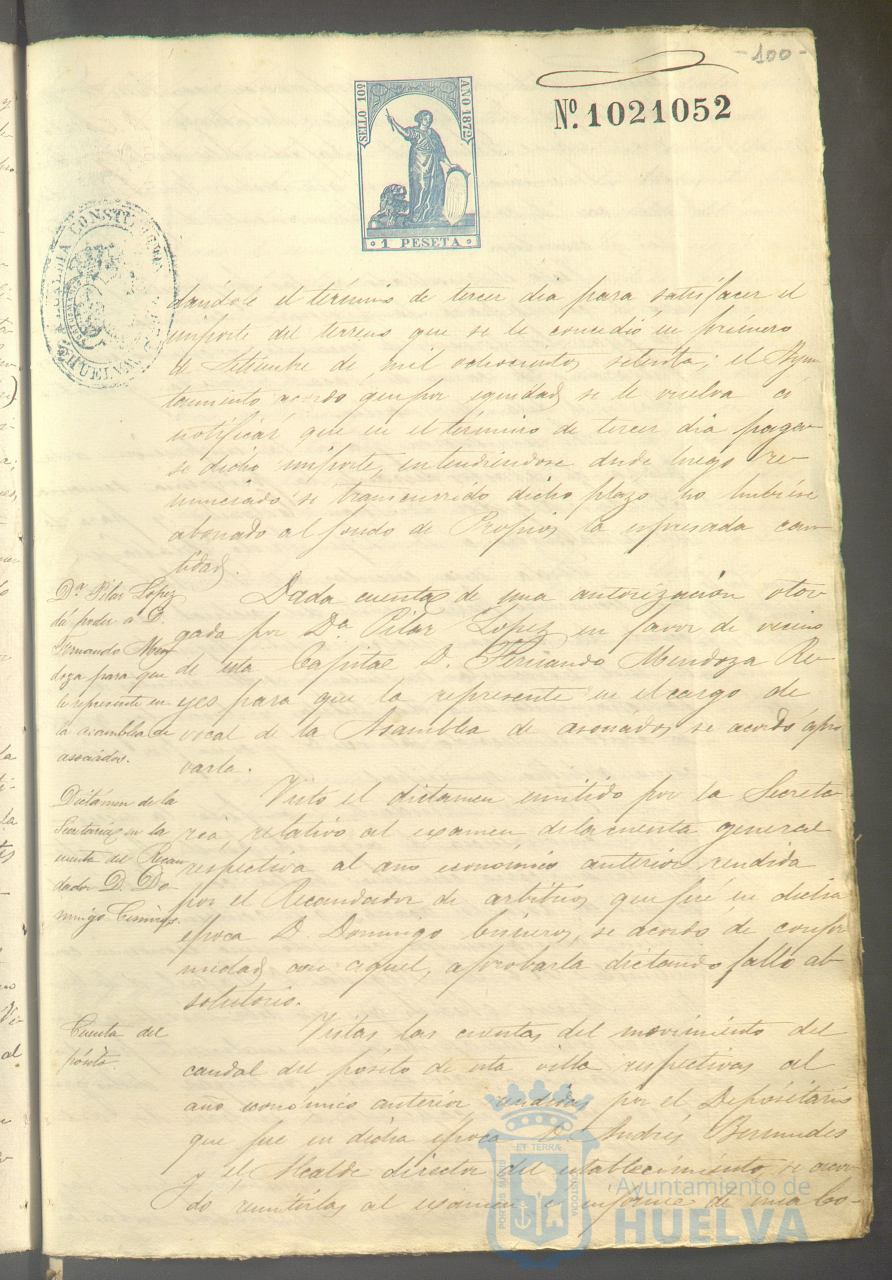 -100-
SELLO 10º
AÑO 1872
1 PESETA
Nº. 1021052
ALCALDIA CONSTITUCIONAL
HUELVA
dandole el término de tercer dia para satisfacer el
importe del terreno que se le concedió en primero
de Setiembre de mil ochocientos setenta; el Ayun
tamiento acordo que por equidad se le vuelva a
notificar que en el término de tercer dia paga-
se dicho importe, entendiendose desde luego re-
nunciado si transcurrido dicho plazo no hubiese
abonado al fondo de Propios la espresada can
tidad.
Dª Pilar Lopez
dá poder á D.
Fernando Men
doza para que
le represente en
la asamblea de
asociados.
Dada cuenta de una autorización otor
gada por Dª Pilar Lopez en favor de vecino
de esta Capital D. Fernando Mendoza Re-
yes para que la represente en el cargo de
vocal de la Asamblea de asociados se acordó apro
varla.
Dictámen de la
Secretaria en la
cuenta del Recau
dador D. Do-
mingo Cisneros.
Visto el dictamen emitido por la Secreta-
ria, relativo al examen de la cuenta general
respectiva al año económico anterior rendida
por el Recaudador de arbitrios que fué en dicha
época D. Domingo Cisneros, se acordó de confor
midad con aquel, aprobarla dictando fallo ab
solutorio.
Cuenta del
pósito.
Vistas las cuentas del movimiento del
caudal del pósito de esta villa respectivas al
año económico anterior rendidas por el Depositario
que fue en dicha época D. Andrés Bermudes
y el Alcalde director del establecimiento, se acor-
do remitirlas al examen e informe de una Co-
PORTUS MARIS
ET TERRÆ
CUSTODIA
Ayuntamiento de
HUELVA